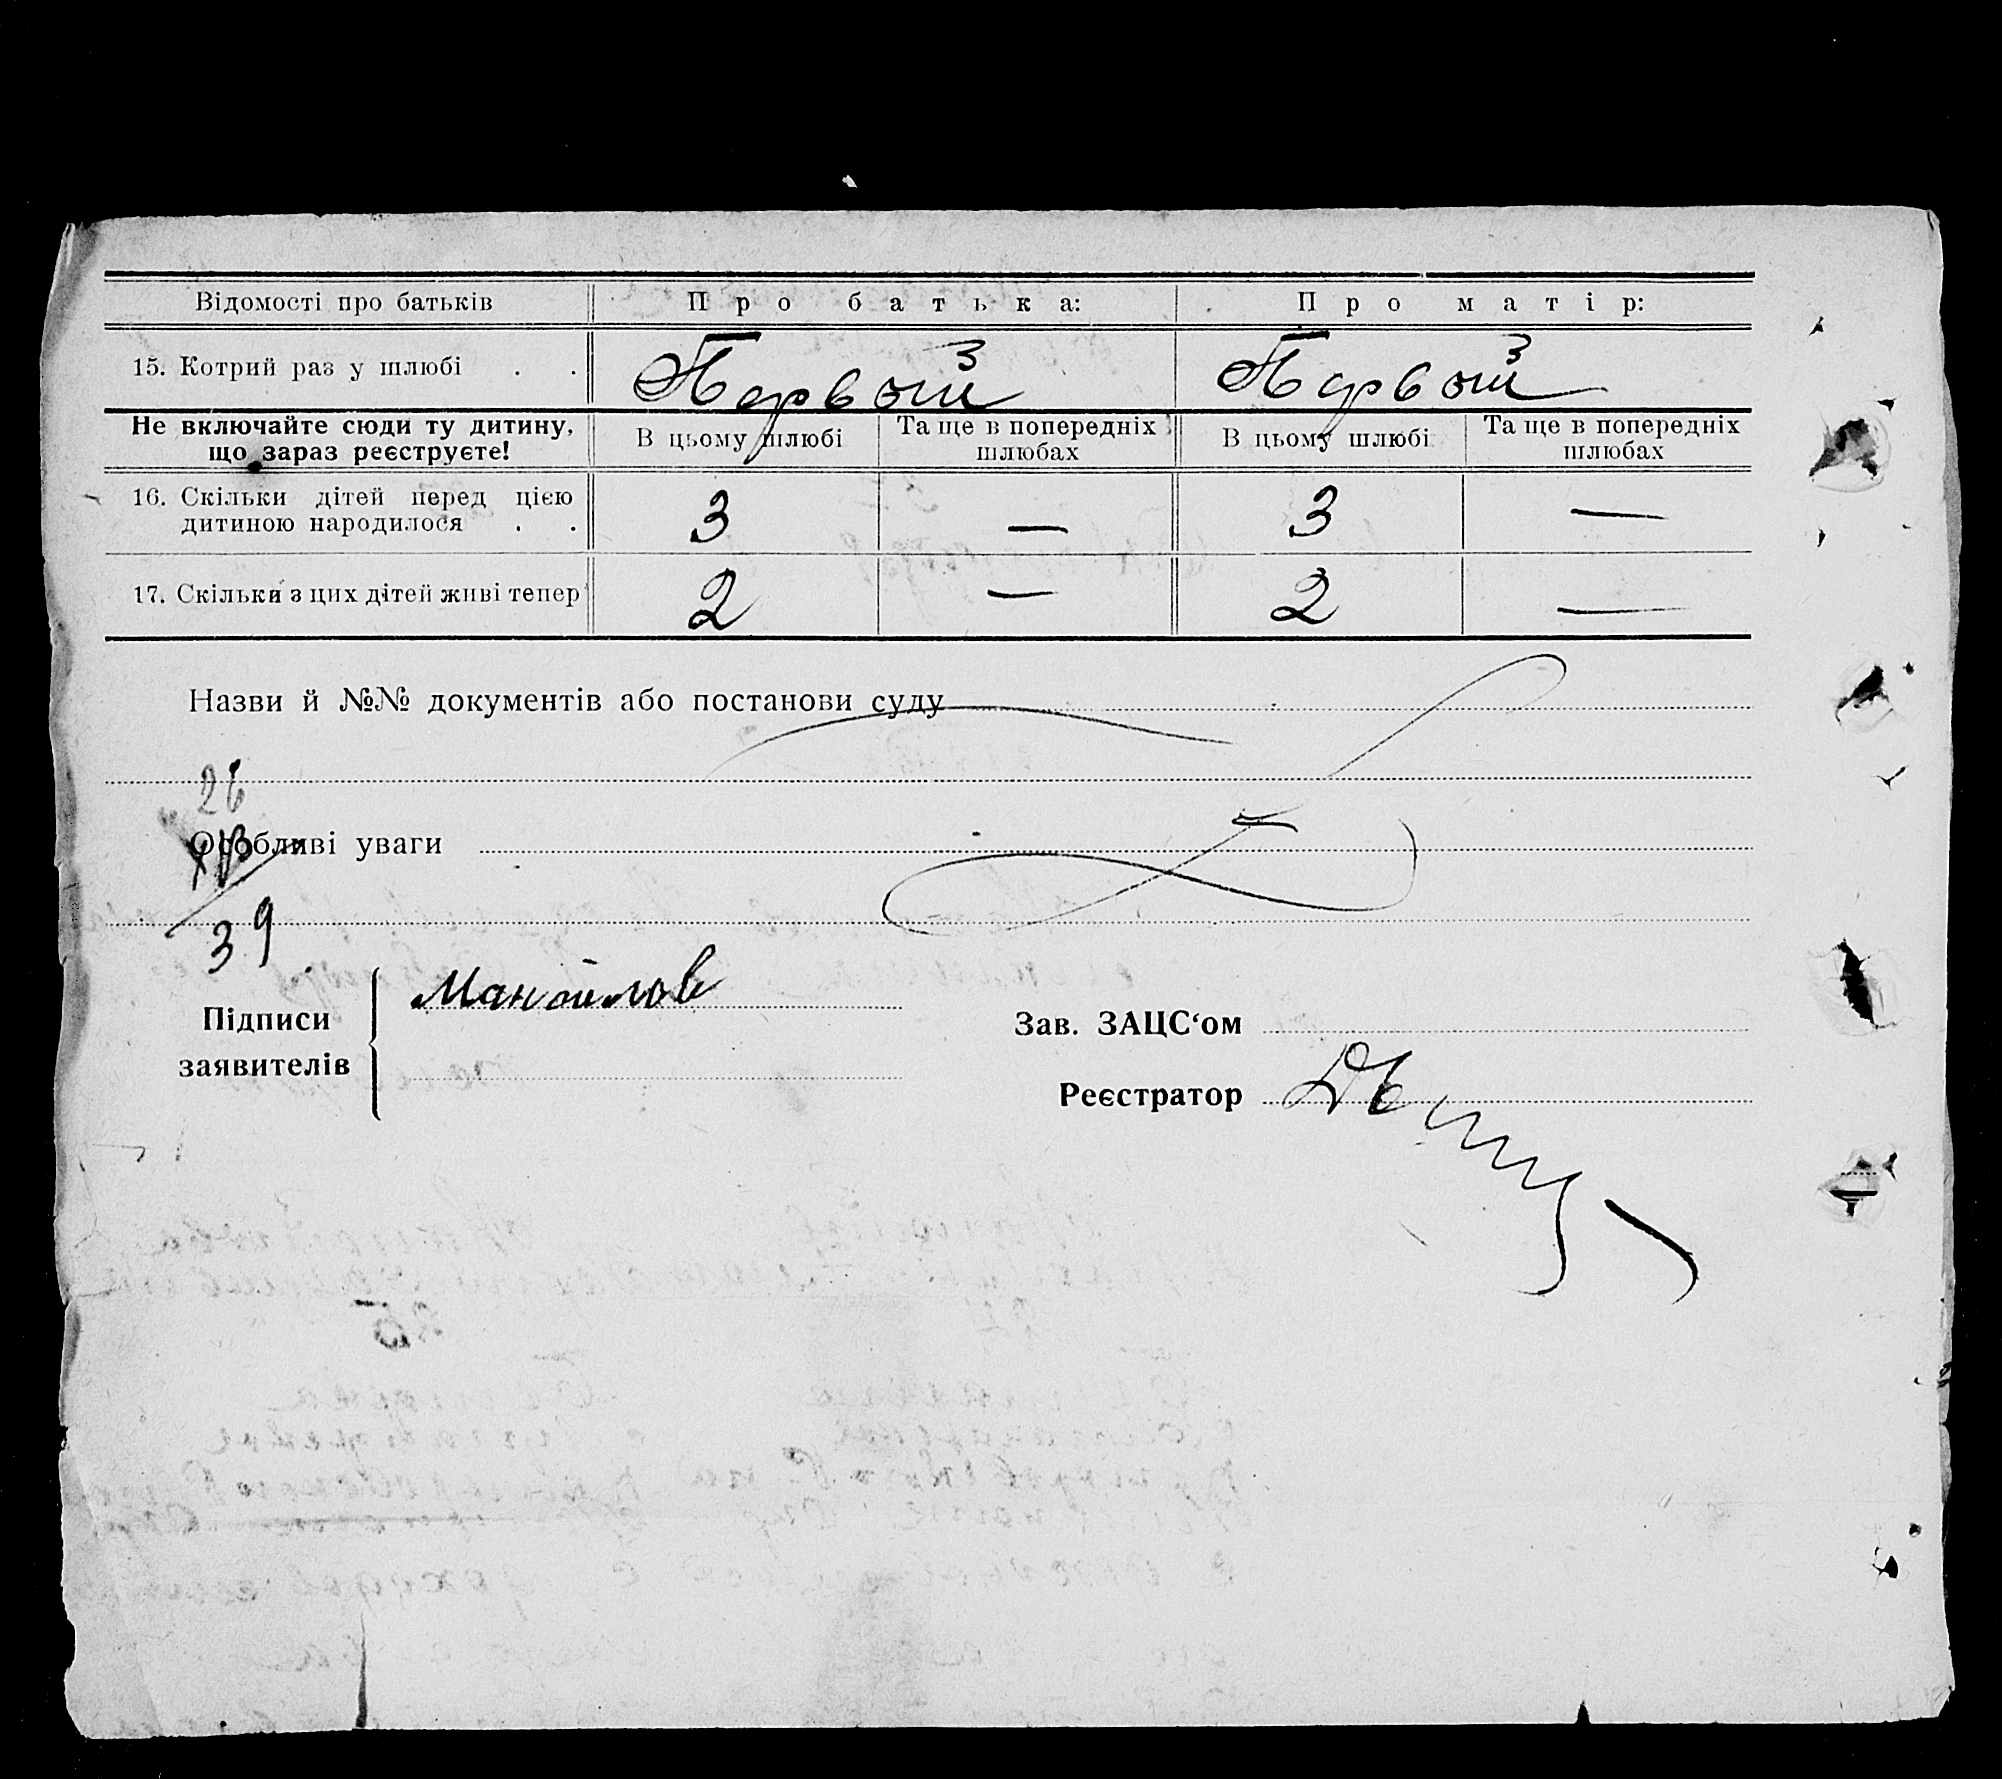 Відомості про батьків Про батька: Про матір:
15. Котрий раз у шлюбі . . Первой Первой
Не включайте сюди ту дитину, що зараз реєструєте! В цьому шлюбі Та ще в попередніх шлюбах В цьому шлюбі Та ще в попередніх шлюбах
16. Скільки дітей перед цією
дитиною народилося . . 3 — 3 —
17. Скільки з цих дітей живі тепер 2 — 2 —
Назви й №№ документів або постанови суду
26
Особливі уваги
39
Підписи
заявителів
Манойлов
Зав. ЗАЦС‘ом
Реєстратор